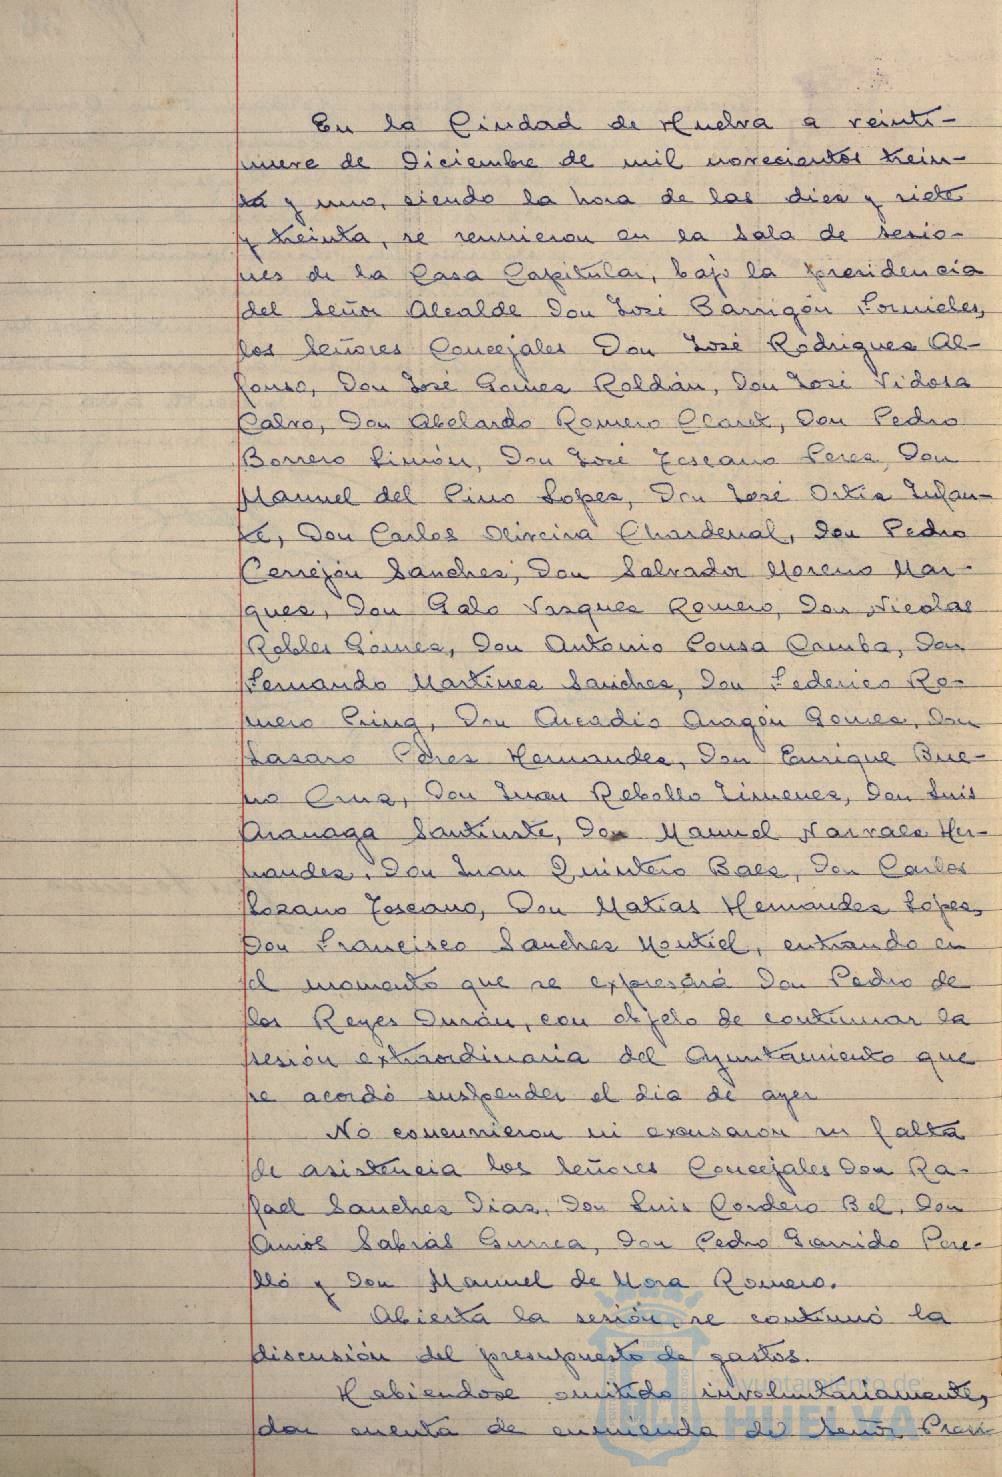 En la Ciudad de Huelva a veinti-
nueve de Diciembre de mil novecientos trein-
ta y uno, siendo la hora de las diez y siete
y treinta, se reunieron en la Sala de Sesio-
nes de la Casa Capitular, bajo la presidencia
del Señor Alcalde Don José Barrigón Fornieles,
los Señores Concejales Don José Rodriguez Al-
fonso, Don José Gomez Roldán, Don José Vidosa
Calvo, Don Abelardo Romero Claret, Don Pedro
Borrero Limón, Don José Toscano Perez, Don
Manuel del Pino Lopez, Don José Ortiz Infan-
te, Don Carlos Oliveira Chardenal, Don Pedro
Cerrejón Sanchez, Don Salvador Moreno Mar-
quez, Don Galo Vazquez Romero, Don Nicolas
Robles Gómez, Don Antonio Pousa Camba, Don
Fernando Martinez Sanchez, Don Federico Ro-
mero Pring, Don Arcadio Aragón Gomez, Don
Lazaro Pérez Hernandez, Don Enrique Bue-
no Cruz, Don Juan Rebollo Jimenez, Don Luis
Aranaga Santiuste, Don Manuel Narvaez Her-
nandez, Don Juan Quintero Baez, Don Carlos
Lozano Toscano, Don Matias Hernandez López,
Don Francisco Sanchez Montiel, entrando en
el momento que se expresará Don Pedro de
los Reyes Durán, con objeto de continuar la
sesión extraordinaria del Ayuntamiento que
se acordó suspender el dia de ayer
No concurrieron ni excusaron su falta
de asistencia los Señores Concejales Don Ra-
fael Sanchez Diaz, Don Luis Cordero Bel, Don
Amós Sabrás Gurrea, Don Pedro Garrido Pere-
lló y Don Manuel de Mora Romero.
Abierta la sesión, se continuó la
discusión del presupuesto de gastos.
Habiendose omitido involuntariamente,
dar cuenta de enmienda del Señor Presi-
Ayuntamiento de
HUELVA